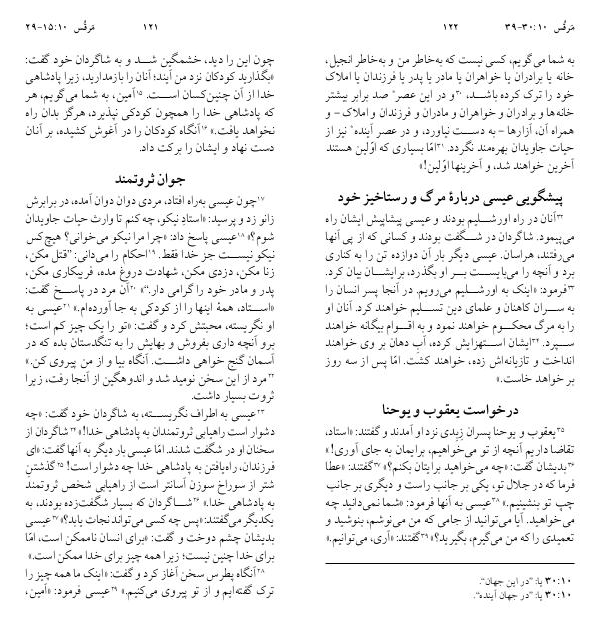 مَرقُس ۱۰:‏۱۵-۲۹ ۱۲۱
چون این را دید، خشمگین شد و به شاگردان خود گفت:
«بگذارید کودکان نزد من آیند؛ آنان را بازمدارید، زیرا پادشاهی
خدا از آن چنین‌کسان است. ۱۵آمین، به شما می‌گویم، هر
که پادشاهی خدا را همچون کودکی نپذیرد، هرگز بدان راه
نخواهد یافت.» ۱۶آنگاه کودکان را در آغوش کشیده، بر آنان
دست نهاد و ایشان را برکت داد.
جوان ثروتمند
۱۷چون عیسی به‌راه افتاد، مردی دوان دوان آمده، در برابرش
زانو زد و پرسید: «استادِ نیکو، چه کنم تا وارث حیات جاویدان
شوم؟» ۱۸عیسی پاسخ داد: «چرا مرا نیکو می‌خوانی؟ هیچ‌کس
نیکو نیست جز خدا فقط. ۱۹احکام را می‌دانی: ”قتل مکن،
زنا مکن، دزدی مکن، شهادت دروغ مده، فریبکاری مکن،
پدر و مادر خود را گرامی دار.“» ۲۰آن مرد در پاسخ گفت:
«استاد، همۀ اینها را از کودکی به جا آورده‌ام.» ۲۱عیسی به
او نگریسته، محبتش کرد و گفت: «تو را یک چیز کم است؛
برو آنچه داری بفروش و بهایش را به تنگدستان بده که در
آسمان گنج خواهی داشت. آنگاه بیا و از من پیروی کن.»
۲۲مرد از این سخن نومید شد و اندوهگین از آنجا رفت، زیرا
ثروت بسیار داشت.
۲۳عیسی به اطراف نگریسته، به شاگردان خود گفت: «چه
دشوار است راهیابی ثروتمندان به پادشاهی خدا!» ۲۴شاگردان از
سخنان او در شگفت شدند. امّا عیسی بار دیگر به آنها گفت: «ای
فرزندان، راه‌یافتن به پادشاهی خدا چه دشوار است! ۲۵گذشتن
شتر از سوراخ سوزن آسانتر است از راهیابی شخص ثروتمند
به پادشاهی خدا.» ۲۶شاگردان که بسیار شگفت‌زده بودند، به
یکدیگر می‌گفتند: «پس چه کسی می‌تواند نجات یابد؟» ۲۷عیسی
بدیشان چشم دوخت و گفت: «برای انسان ناممکن است، امّا
برای خدا چنین نیست؛ زیرا همه چیز برای خدا ممکن است.»
۲۸آنگاه پطرس سخن آغاز کرد و گفت: «اینک ما همه چیز را
ترک گفته‌ایم و از تو پیروی می‌کنیم.» ۲۹عیسی فرمود: «آمین،
مَرقُس ۱۰:‏۳۰-۳۹ ۱۲۲
به شما می‌گویم، کسی نیست که به‌خاطر من و به‌خاطر انجیل،
خانه یا برادران یا خواهران یا مادر یا پدر یا فرزندان یا املاک
خود را ترک کرده باشد، ۳۰و در این عصر* صد برابر بیشتر
خانه‌ها و برادران و خواهران و مادران و فرزندان و املاک - و
همراه آن، آزارها - به دست نیاورد، و در عصر آینده* نیز از
حیات جاویدان بهره‌مند نگردد. ۳۱امّا بسیاری که اوّلین هستند
آخرین خواهند شد، و آخرینها اوّلین!»
پیشگویی عیسی دربارۀ مرگ و رستاخیز خود
۳۲آنان در راه اورشلیم بودند و عیسی پیشاپیش ایشان راه
می‌پیمود. شاگردان در شگفت بودند و کسانی که از پی آنها
می‌رفتند، هراسان. عیسی دیگر بار آن دوازده تن را به کناری
برد و آنچه را می‌بایست بر او بگذرد، برایشان بیان کرد.
۳۳فرمود: «اینک به اورشلیم می‌رویم. در آنجا پسر انسان را
به سران کاهنان و علمای دین تسلیم خواهند کرد. آنان او
را به مرگ محکوم خواهند نمود و به اقوام بیگانه خواهند
سپرد. ۳۴ایشان استهزایش کرده، آبِ دهان بر وی خواهند
انداخت و تازیانه‌اش زده، خواهند کشت. امّا پس از سه روز
بر خواهد خاست.»
درخواست یعقوب و یوحنا
۳۵یعقوب و یوحنا پسران زِبِدی نزد او آمدند و گفتند: «استاد،
تقاضا داریم آنچه از تو می‌خواهیم، برایمان به جای آوری!»
۳۶بدیشان گفت: «چه می‌خواهید برایتان بکنم؟» ۳۷گفتند: «عطا
فرما که در جلال تو، یکی بر جانب راست و دیگری بر جانب
چپ تو بنشینیم.» ۳۸عیسی به آنها فرمود: «شما نمی‌دانید چه
می‌خواهید. آیا می‌توانید از جامی که من می‌نوشم، بنوشید و
تعمیدی را که من می‌گیرم، بگیرید؟» ۳۹گفتند: «آری، می‌توانیم.»
۱۰:‏۳۰ یا: ”در این جهان“.
۱۰:‏۳۰ یا: ”در جهان آینده“.